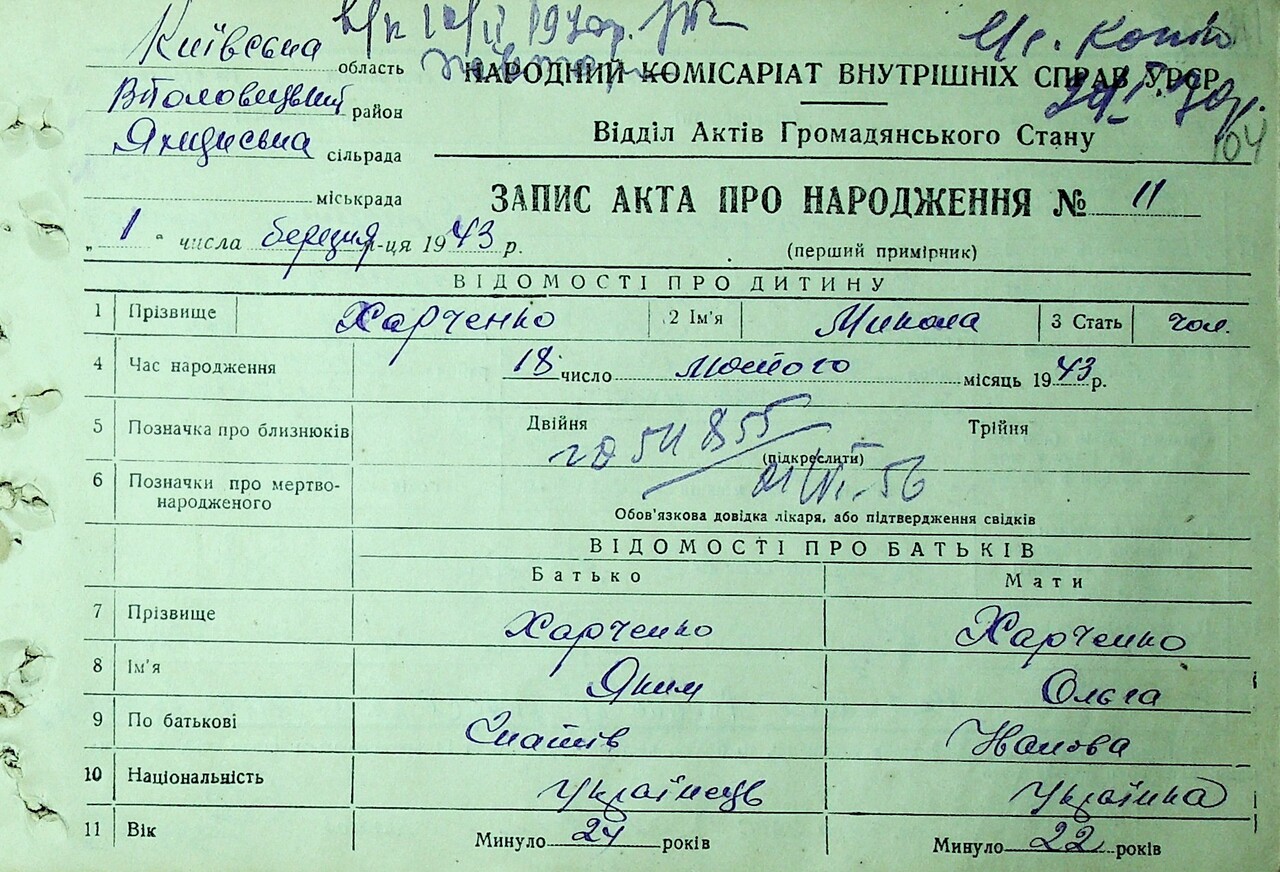 Київська область
район
сільрада
міськрада
НАРОДНИЙ КОМІСАРІАТ ВНУТРІШНІХ СПРАВ УРСР
Відділ Актів Громадянського Стану
ЗАПИС АКТА ПРО НАРОДЖЕННЯ № 11
„ 1 “ числа березня м-ця 19 43 р.
(перший примірник)
ВІДОМОСТІ ПРО ДИТИНУ
1 Прізвище Харченко 2 Ім'я Микола 3 Стать чол.
4 Час народження 18 число лютого місяць 19 43 р.
5 Позначка про близнюків Двійня Трійня
(підкреслити)
6 Позначки про мертво-
народженого
Обов'язкова довідка лікаря, або підтвердження свідків
ВІДОМОСТІ ПРО БАТЬКІВ
Батько Мати
7 Прізвище Харченко Харченко
8 Ім'я Яким Ольга
9 По батькові
10 Національність Українець Українка
11 Вік Минуло 24 років Минуло 22 років